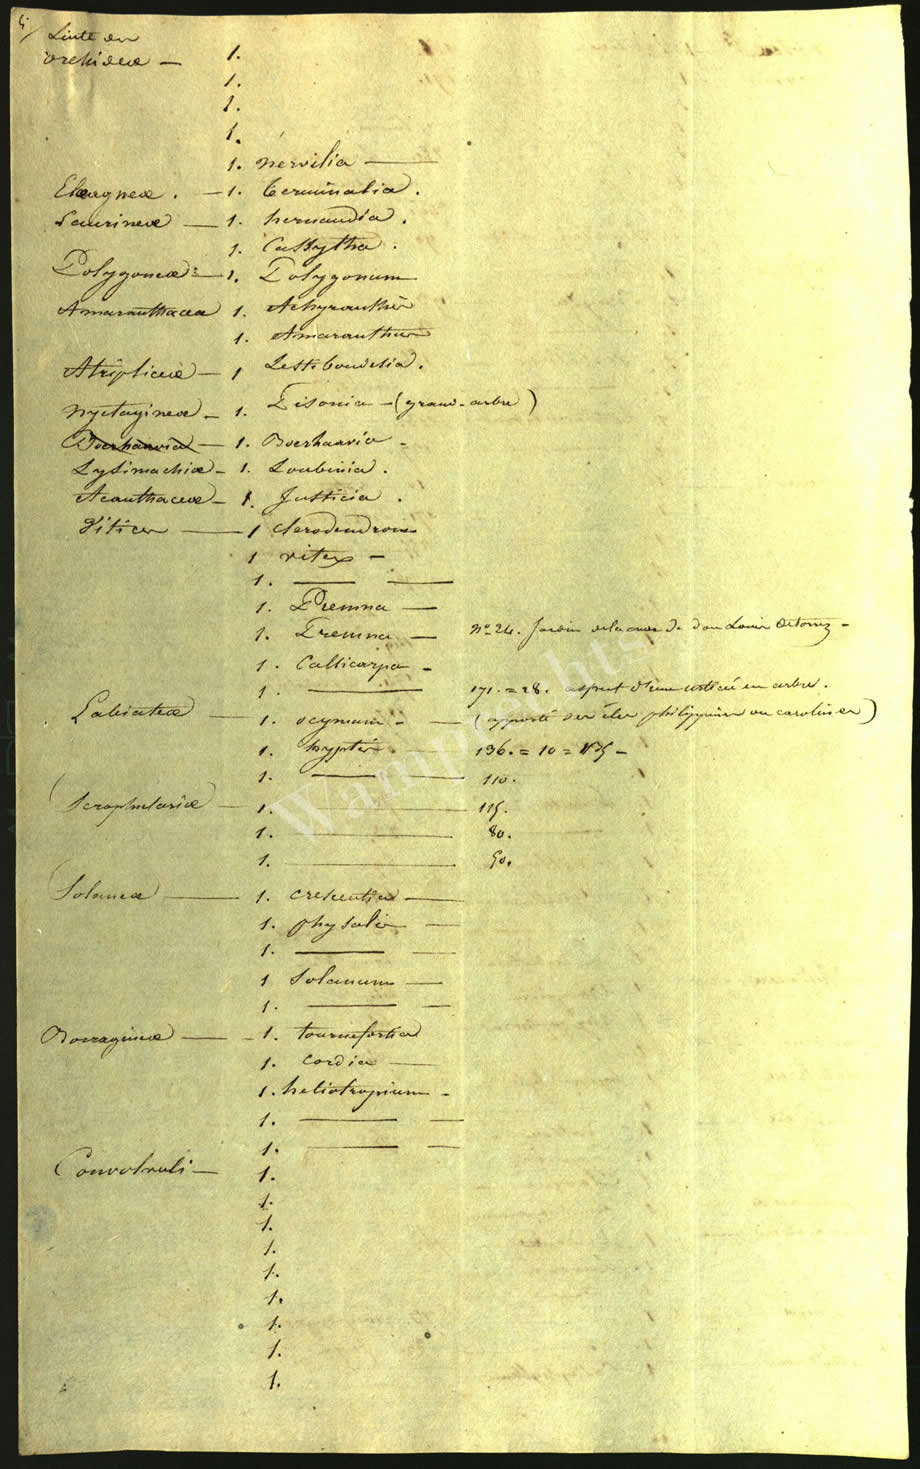 Suite des
orchideæ — 1.
1.
1.
1.
1. nervilia —
Eleagneæ. — 1. terminalia.
Laurineæ — 1. hernandia.
1. Cassytha.
Polygoneæ — 1. Polygonum
Amaranthaceæ 1. Achyranthes
1. Amaranthus
Atripliceæ — 1 Lestiboudesia.
Nyctagineæ — 1. Pisonia — (grand-arbre)
Boerhaavia — 1. Boerhaavia -
Lysimachiæ - 1. Loubinia.
Acanthaceæ - 1. Justicia.
Vitices — 1 clerodendrum
1 vitex -
1. — —
1. Premna —
1. Premna — No 24. Jardin de la cure de don Louis de torrez -
1. Callicarpa -
1. — 171. = 28. aspect d'une urticée en arbre.
Labiateæ — 1. ocymum - — (apporté des îles philippines ou carolines)
1. hyptis. — 136. = 10 = 135 -
1. — — 110.
Scrophulariæ — 1. — 115.
1. — 80.
1. — 50.
Solaneæ — 1. crescentia —
1. physalis —
1. — —
1 Solanum —
1. — —
Borragineæ — - 1. tournefortia
1. cordia —
1. heliotropium -
1. — —
1. — —
Convolvuli — 1.
1.
1.
1.
1.
1.
1.
1.
1.
Wamprechts